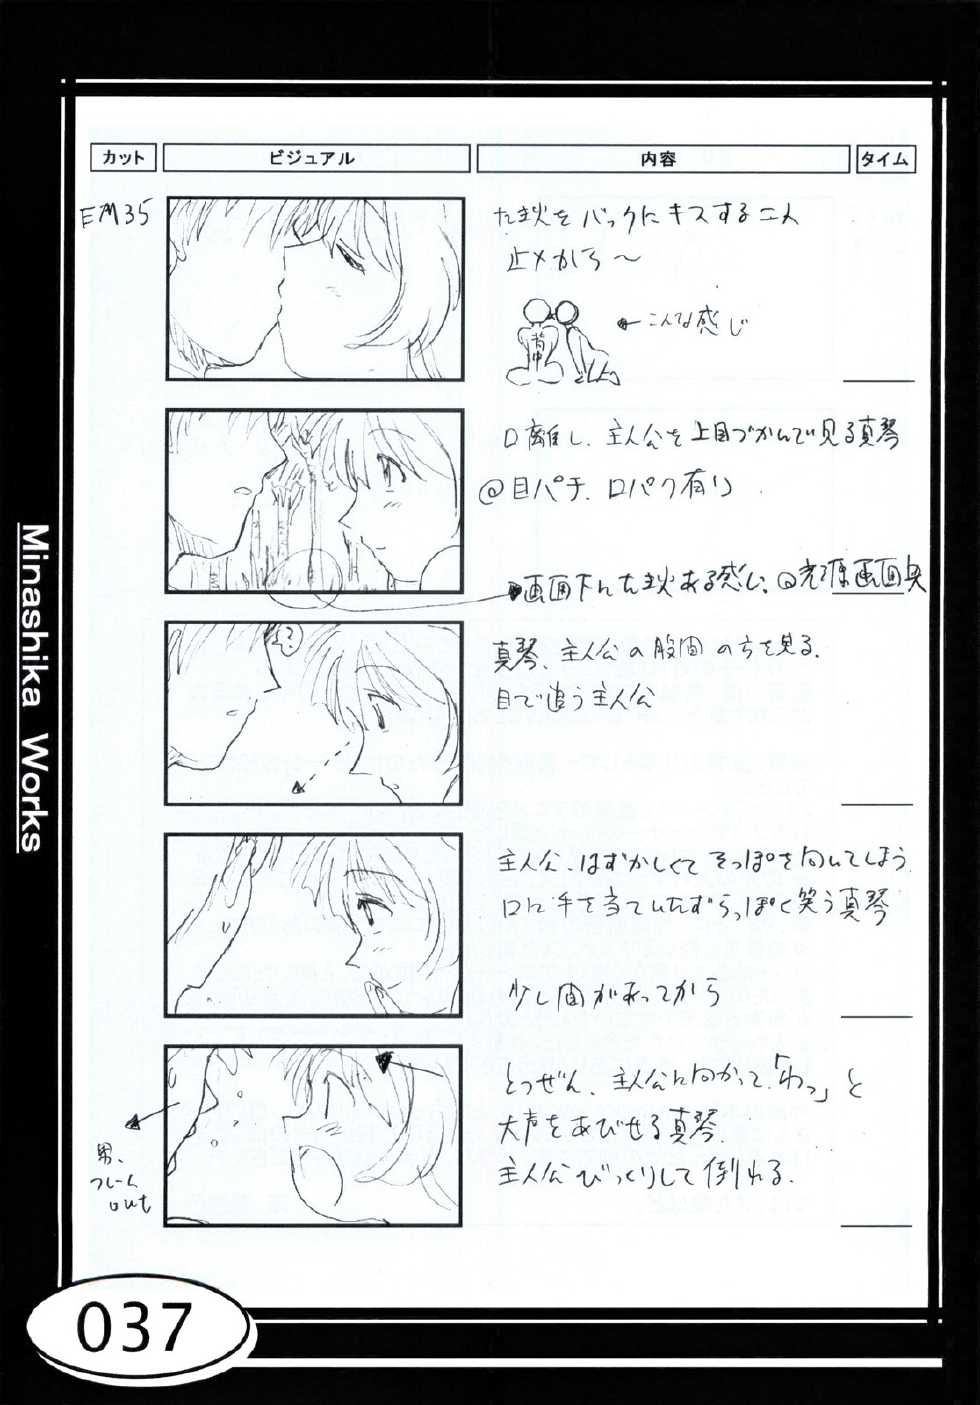 カット ビジュアル 内容 タイム
EM35
たき火をバックにキスする二人
止メから～
背中
←こんな感じ
口離し、主人公を上目づかいで見る真琴
@目パチ、口パク有り
画面下にたき火ある感じ。@光源画面奥
?
真琴、主人公の股間の方を見る。
目で追う主人公
主人公、はずかしくてそっぽを向いてしまう。
口に手を当ていたずらっぽく笑う真琴
少し間があってから
とつぜん、主人公に向かって「わっ」と
大声をあびせる真琴。
主人公びっくりして倒れる。
男、
フレーム
out
Minashika Works
037